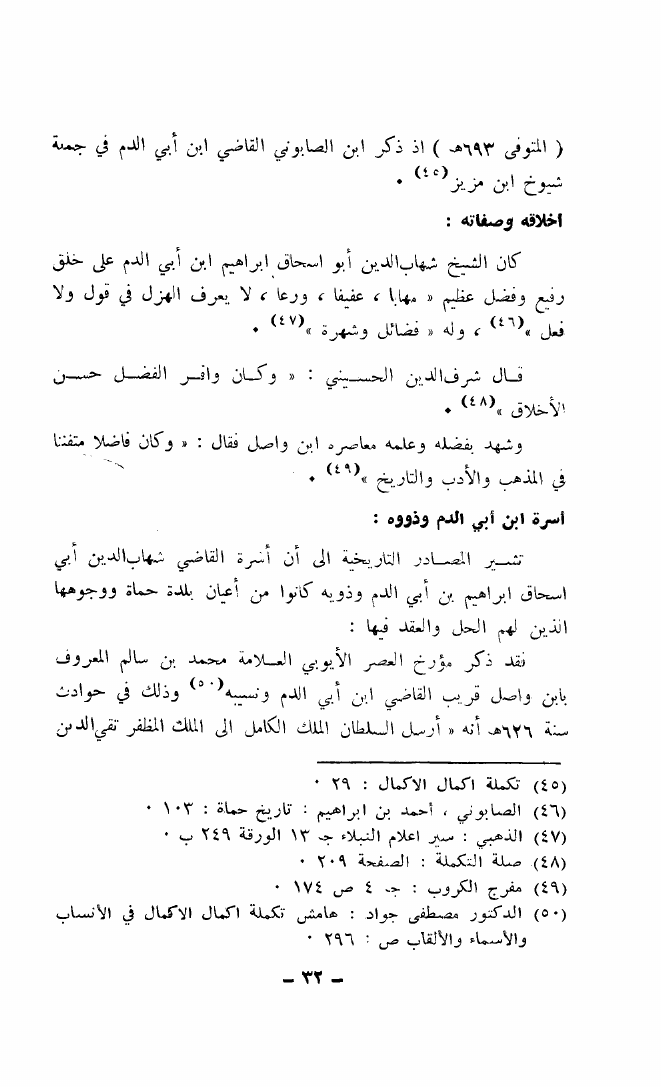 ( المتوفى ٦٩٣هـ ) اذ ذكر ابن الصابوني القاضي ابن أبي الدم في جملة
شيوخ ابن مزيز(٤٥) ٠
أخلاقه وصفاته :
كان الشيخ شهاب‌الدين أبو اسحاق ابراهيم ابن أبي الدم على خلق
رفيع وفضل عظيم « مهابا ، عفيفا ، ورعا ، لا يعرف الهزل في قول ولا
فعل »(٤٦) ، وله « فضائل وشهرة »(٤٧) ٠
قال شرف‌الدين الحسيني : « وكان وافر الفضل حسن
الأخلاق »(٤٨) ٠
وشهد بفضله وعلمه معاصره ابن واصل فقال : « وكان فاضلا متفننا
في المذهب والأدب والتاريخ »(٤٩) ٠
أسرة ابن أبي الدم وذووه :
تشير المصادر التاريخية الى أن أسرة القاضي شهاب‌الدين أبي
اسحاق ابراهيم بن أبي الدم وذويه كانوا من أعيان بلدة حماة ووجوهها
الذين لهم الحل والعقد فيها :
نقد ذكر مؤرخ العصر الأيوبي العلامة محمد بن سالم المعروف
بابن واصل قريب القاضي ابن أبي الدم ونسيبه(٥٠) وذلك في حوادث
سنة ٦٢٦هـ أنه « أرسل السلطان الملك الكامل الى الملك المظفر تقي‌الدين
(٤٥) تكملة اكمال الاكمال : ٢٩ ٠
(٤٦) الصابوني ، أحمد بن ابراهيم : تاريخ حماة : ١٠٣ ٠
(٤٧) الذهبي : سير اعلام النبلاء جـ ١٣ الورقة ٢٤٩ ب ٠
(٤٨) صلة التكملة : الصفحة ٢٠٩ ٠
(٤٩) مفرج الكروب : جـ ٤ ص ١٧٤ ٠
(٥٠) الدكتور مصطفى جواد : هامش تكملة اكمال الاكمال في الأنساب
والأسماء والألقاب ص : ٢٩٦ ٠
– ٣٢ –